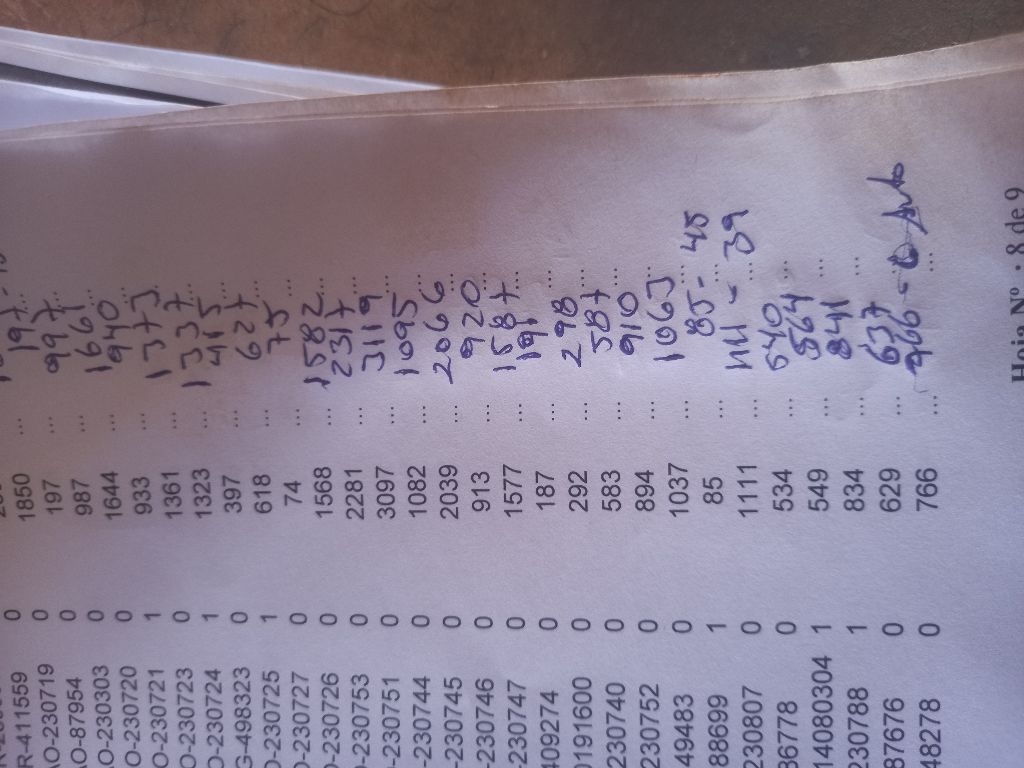 R-411559 0
AO-230719 0 1850 ...
AO-87954 0 197 ... 197 ...
O-230303 0 987 ... 997 ...
O-230720 0 1644 ... 1661 ...
O-230721 1 933 ... 940 ...
O-230723 0 1361 ... 1373 ...
O-230724 1 1323 ... 1337 ...
G-498323 0 397 ... 415 ...
-230725 1 618 ... 627 ...
-230727 0 74 ... 75 ...
-230726 0 1568 ... 1582 ...
-230753 0 2281 ... 2317 ...
-230751 0 3097 ... 3119 ...
-230744 0 1082 ... 1095 ...
-230745 0 2039 ... 2066 ...
-230746 0 913 ... 920 ...
-230747 0 1577 ... 1587 ...
409274 0 187 ... 191 ...
0191600 0 292 ... 298 ...
230740 0 583 ... 587 ...
230752 0 894 ... 910 ...
49483 0 1037 ... 1063 ...
88699 1 85 ... 85 - 45
230807 0 1111 ... 1111 - 39
86778 0 534 ... 540 ...
14080304 1 549 ... 564 ...
230788 1 834 ... 841 ...
87676 0 629 ... 637 ...
48278 0 766 ...
Hoja Nº · 8 de 9